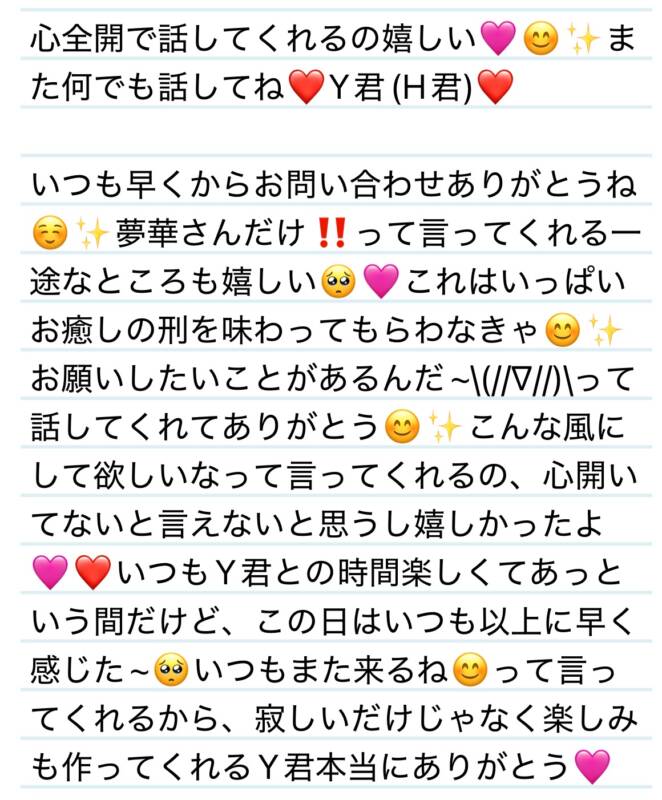 心全開で話してくれるの嬉しい🩷😊✨ま
た何でも話してね❤️Ｙ君(Ｈ君)❤️
いつも早くからお問い合わせありがとうね
☺️✨夢華さんだけ‼️って言ってくれる一
途なところも嬉しい🥺🩷これはいっぱい
お癒しの刑を味わってもらわなきゃ😊✨
お願いしたいことがあるんだ~\(//∇//)\って
話してくれてありがとう😊✨こんな風に
して欲しいなって言ってくれるの、心開い
てないと言えないと思うし嬉しかったよ
🩷❤️いつもＹ君との時間楽しくてあっと
いう間だけど、この日はいつも以上に早く
感じた~🥺いつもまた来るね😊って言っ
てくれるから、寂しいだけじゃなく楽しみ
も作ってくれるＹ君本当にありがとう🩷